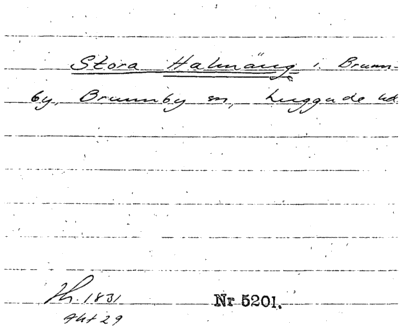 Stora Halmäng i Brunn-
by, Brunnby sn, Luggude hd
Th. 1831
Nr 5201.
29